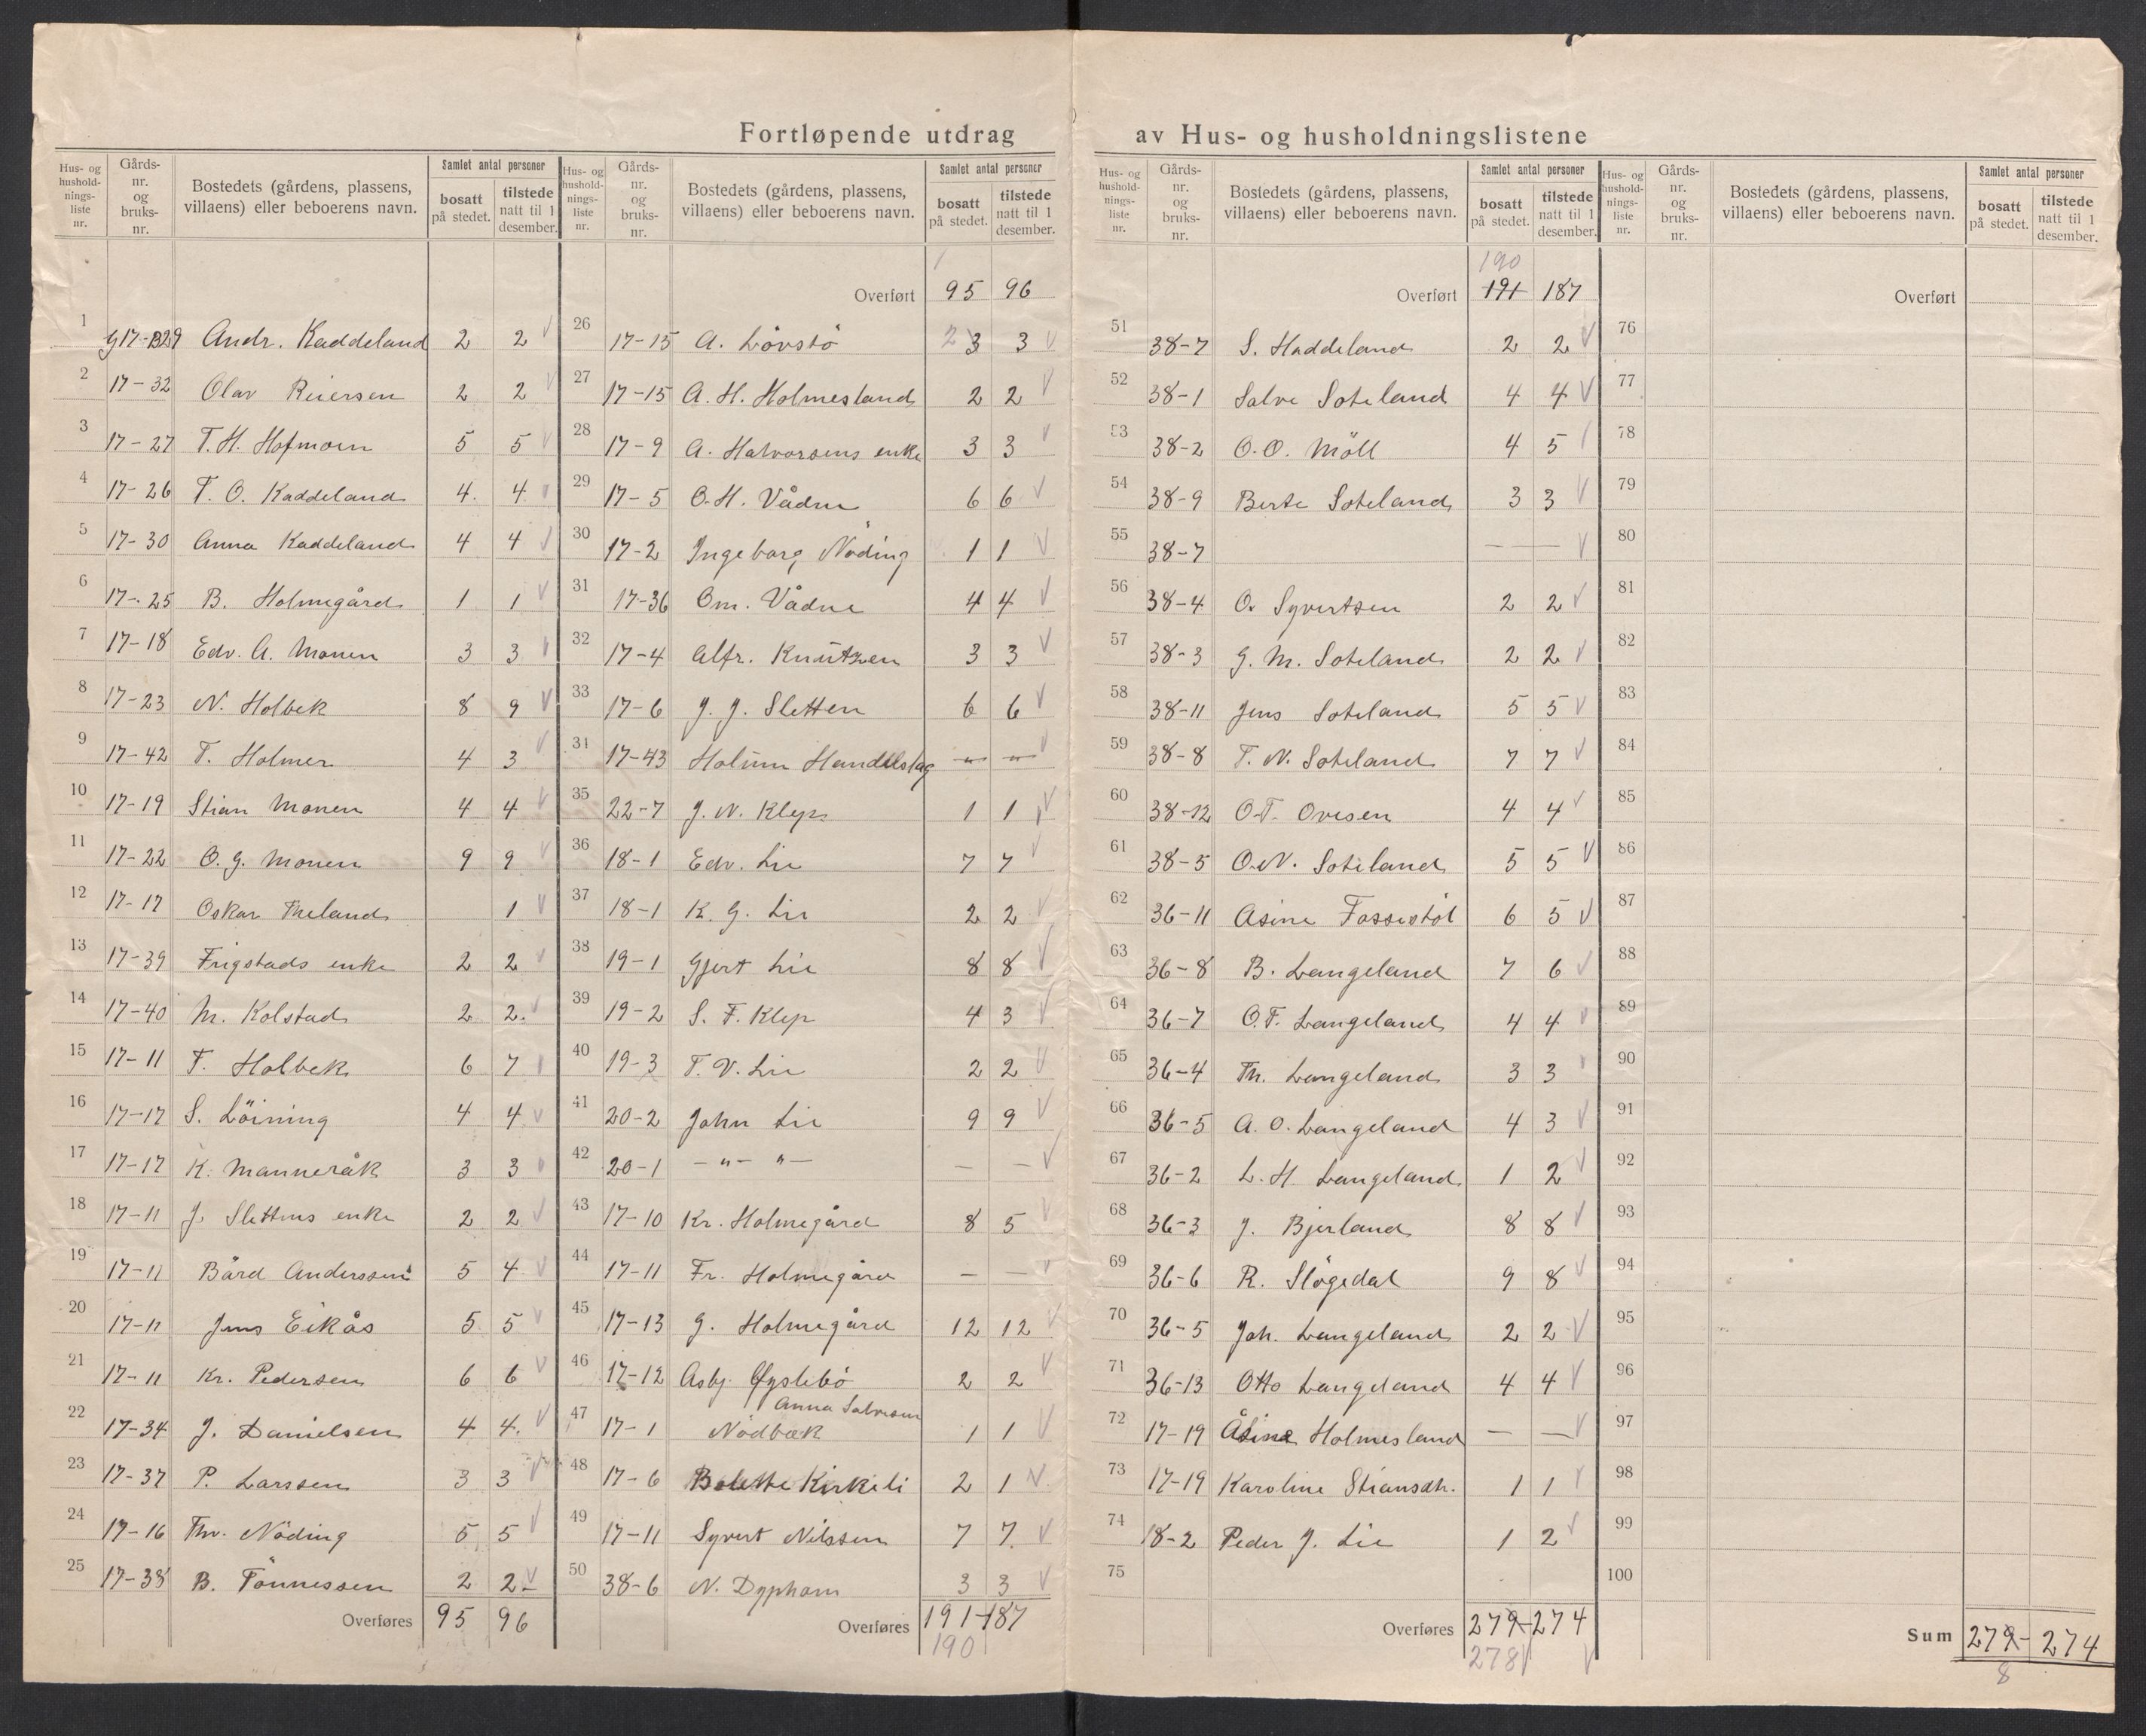 Fortløpende utdrag av Hus- og husholdningslistene
Hus- og husholdnings-liste nr. | Gårds-nr. og bruks-nr. | Bostedets (gårdens, plassens, villaens) eller beboerens navn. | Samlet antal personer | bosatt på stedet. | tilstede natt til 1 desember.
1 G17-B29 Andr. Kaddeland 2 2
2 17-32 Olav Reiersen 2 2
3 17-27 T. H. Hofmoen 5 5
4 17-26 T. O. Kaddeland 4 4
5 17-30 Anna Kaddeland 4 4
6 17-25 B. Holmegård 1 1
7 17-18 Edv. A. Monen 3 3
8 17-23 N. Holbek 8 9
9 17-42 T. Holmer 4 3
10 17-19 Stian Monen 4 4
11 17-22 O. G. Monen 9 9
12 17-17 Oskar 1
13 17-39 Frigstads enke 2 2
14 17-40 M. Kolstad 2 2
15 17-11 T. Holbek 6 7
16 17-17 S. Löining 4 4
17 17-17 K. Manneråk 3 3
18 17-11 J. Slettens enke 2 2
19 17-11 Bård Anderssen 5 4
20 17-11 Jens Eikås 5 5
21 17-11 Kr. Pedersen 6 6
22 17-34 J. Danielsen 4 4
23 17-37 P. Larssen 3 3
24 17-16 Thv. Nöding 5 5
25 17-38 B. Tönnessen 2 2
Overføres 95 96
Hus- og husholdnings-liste nr. | Gårds-nr. og bruks-nr. | Bostedets (gårdens, plassens, villaens) eller beboerens navn. | Samlet antal personer | bosatt på stedet. | tilstede natt til 1 desember.
Overført 95 96
26 17-15 A. Lövstö 2 3 3
27 17-15 A. H. Holmesland 2 2
28 17-9 A. Halvorsens enke 3 3
29 17-5 O. H. Vådne 6 6
30 17-2 Ingeborg Nöding 1 1
31 17-36 Om. Vådne 4 4
32 17-4 Alfr. Knutzen 3 3
33 17-6 J. J. Sletten 6 6
34 17-43 Holum Handelslag -"- -"-
35 22-7 J. N. Klep 1 1
36 18-1 Edv. Lie 7 7
37 18-1 K. G. Lie 2 2
38 19-1 Gjert Lie 8 8
39 19-2 S. F. Klep 4 3
40 19-3 T. V. Lie 2 2
41 20-2 John Lie 9 9
42 20-1 -"- "- — —
43 17-10 Kr. Holmegård 8 5
44 17-11 Fr. Holmegård — —
45 17-13 G. Holmegård 12 12
46 17-12 Asbj. Øyslebö 2 2
Anna Salvesen
47 17-1 Nödbæk 1 1
48 17-6 Bolette Kirkeli 2 1
49 17-11 Syvert Nilssen 7 7
50 38-6 N. Dypham 3 3
Overføres 191 187
190
Hus- og husholdnings-liste nr. | Gårds-nr. og bruks-nr. | Bostedets (gårdens, plassens, villaens) eller beboerens navn. | Samlet antal personer | bosatt på stedet. | tilstede natt til 1 desember.
190
Overført 191 187
51 38-7 S. Haddeland 2 2
52 38-1 Salve Soteland 4 4
53 38-2 O. O. Möll 4 5
54 38-9 Berte Soteland 3 3
55 38-7 — —
56 38-4 O. Syvertsen 2 2
57 38-3 G. M. Soteland 2 2
58 38-11 Jens Soteland 5 5
59 38-8 T. N. Soteland 7 7
60 38-12 O. T. Ovesen 4 4
61 38-5 O. N. Soteland 5 5
62 36-11 Asine Fossestöl 6 5
63 36-8 B. Langeland 7 6
64 36-7 O. F. Langeland 4 4
65 36-4 Th. Langeland 3 3
66 36-5 A. O. Langeland 4 3
67 36-2 L. H. Langeland 1 2
68 36-3 J. Bjerland 8 8
69 36-6 R. Slögedal 9 8
70 36-5 Joh. Langeland 2 2
71 36-13 Otto Langeland 4 4
72 17-19 Åsine Holmesland — —
73 17-19 Karoline Stiansdtr. 1 1
74 18-2 Peder J. Lie 1 2
75
Overføres 279 274
278
Hus- og husholdnings-liste nr. | Gårds-nr. og bruks-nr. | Bostedets (gårdens, plassens, villaens) eller beboerens navn. | Samlet antal personer | bosatt på stedet. | tilstede natt til 1 desember.
Overført
76
77
78
79
80
81
82
83
84
85
86
87
88
89
90
91
92
93
94
95
96
97
98
99
100
Sum 279 - 274
8